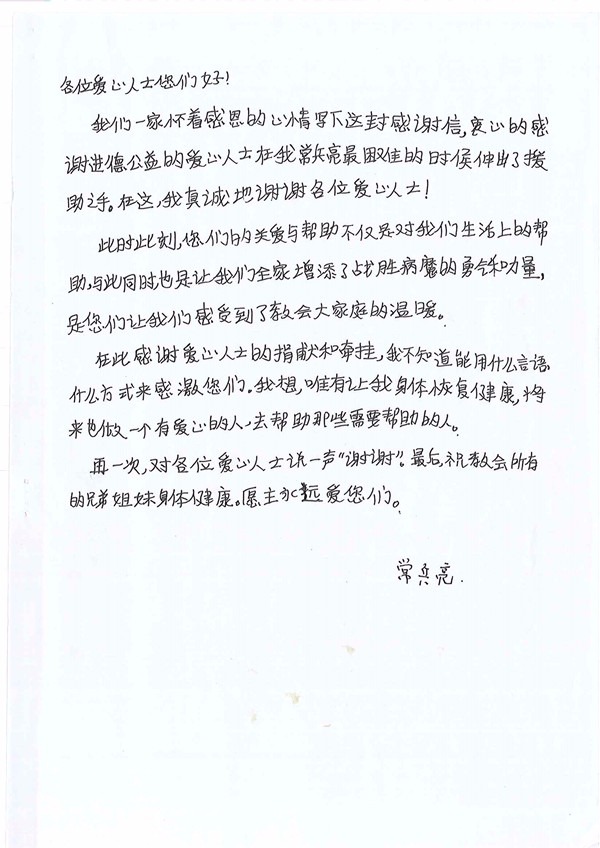 各位爱心人士您们好!
我们一家怀着感恩的心情写下这封感谢信,衷心的感
谢进德公益的爱心人士在我常兵亮最困难的时候伸出了援
助之手。在这,我真诚地谢谢各位爱心人士!
此时此刻,您们的关爱与帮助不仅是对我们生活上的帮
助,与此同时也是让我们全家增添了战胜病魔的勇气和力量,
是您们让我们感受到了教会大家庭的温暖。
在此感谢爱心人士的捐献和牵挂,我不知道能用什么言语
什么方式来感激您们。我想,唯有让我身体恢复健康,将
来也做一个有爱心的人,去帮助那些需要帮助的人。
再一次,对各位爱心人士说一声“谢谢”。最后,祝教会所有
的兄弟姐妹身体健康。愿主永远爱您们。
常兵亮.